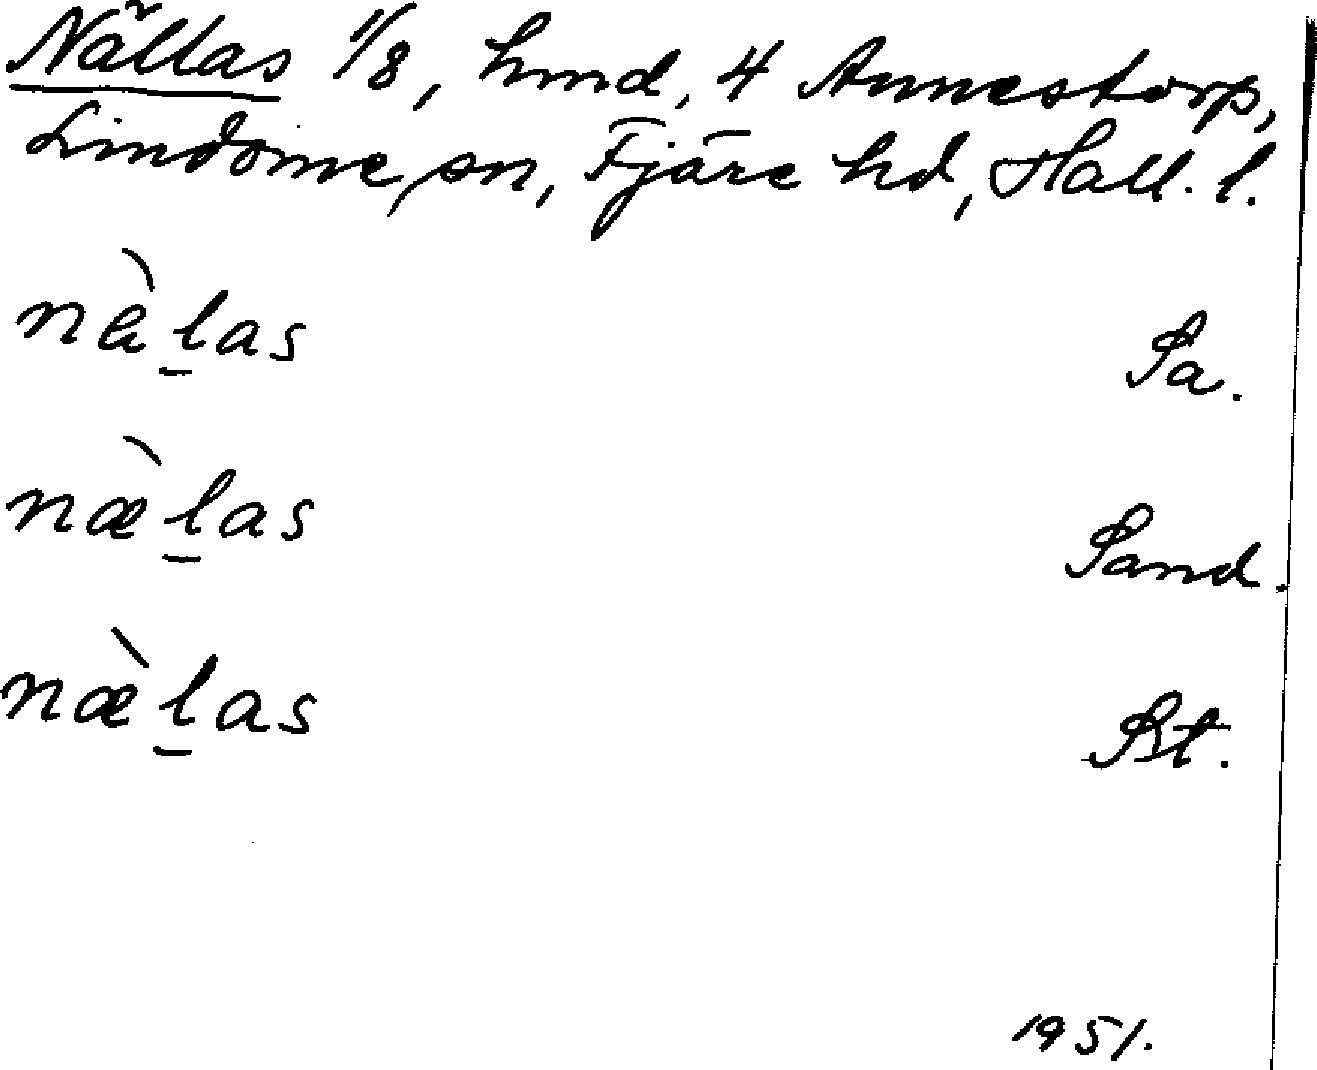 Nällas 1/8, hmd, 4 Annestorp,
Lindome sn, Fjäre hd, Hall. l.
nàl̠as Sa.
næ̀l̠as Sand.
næ̀l̠as St.
1951.